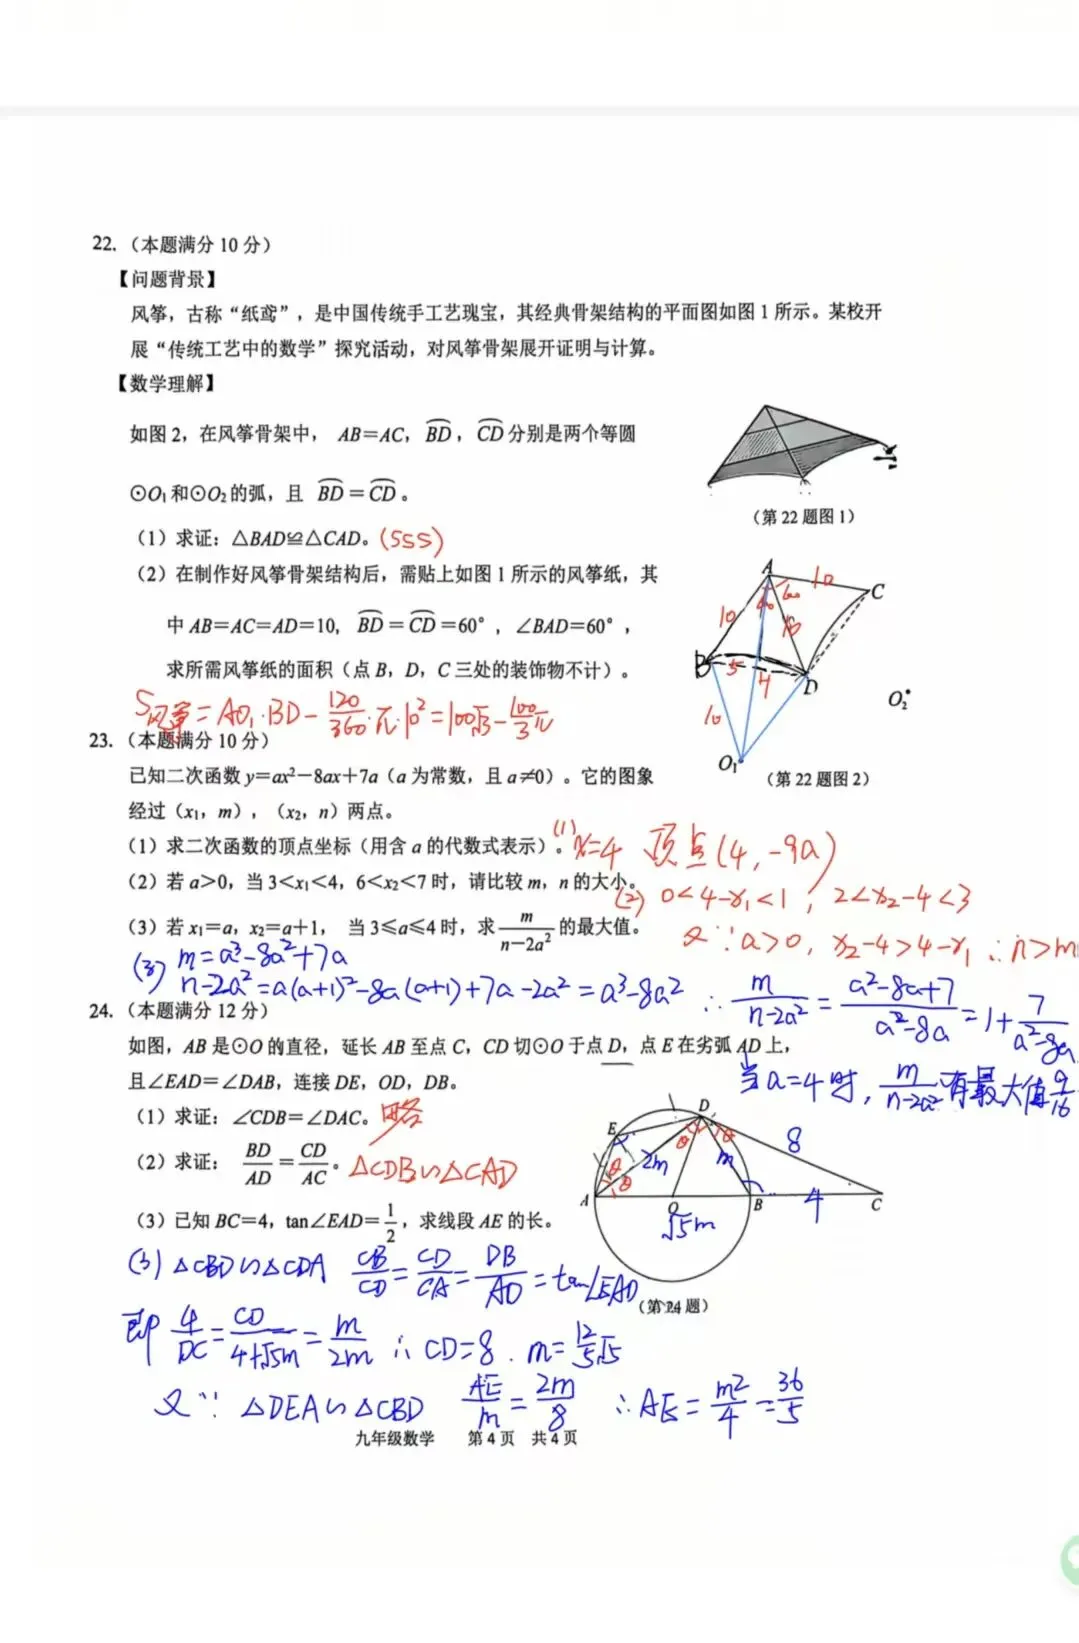 22.（本题满分 10 分）
【问题背景】
风筝，古称“纸鸢”，是中国传统手工艺瑰宝，其经典骨架结构的平面图如图 1 所示。某校开
展“传统工艺中的数学”探究活动，对风筝骨架展开证明与计算。
【数学理解】
如图 2，在风筝骨架中， AB=AC，B͡D，C͡D分别是两个等圆
⊙O₁和⊙O₂的弧，且 B͡D=C͡D。
（第 22 题图 1）
（1）求证：△BAD≌△CAD。(SSS)
（2）在制作好风筝骨架结构后，需贴上如图 1 所示的风筝纸，其
中 AB=AC=AD=10，B͡D=C͡D=60°，∠BAD=60°，
求所需风筝纸的面积（点 B，D，C 三处的装饰物不计）。
A 10 C
60
10 10
B 5 H D
10 O₂
O₁
（第 22 题图 2）
S风筝=AO₁·BD-120/360·π·10²=100√3-100/3π
23.（本题满分 10 分）
已知二次函数 y=ax²-8ax+7a（a 为常数，且 a≠0）。它的图象
经过（x₁，m），（x₂，n）两点。
（1）求二次函数的顶点坐标（用含 a 的代数式表示）。(1) x=4 顶点(4,-9a)
（2）若 a>0，当 3<x₁<4，6<x₂<7 时，请比较 m，n 的大小。
(2) 0<4-x₁<1，2<x₂-4<3
（3）若 x₁=a，x₂=a+1， 当 3≤a≤4 时，求 m/(n-2a²) 的最大值。
又∵a>0, x₂-4>4-x₁ ∴n>m
(3) m=a³-8a²+7a
n-2a²=a(a+1)²-8a(a+1)+7a-2a²=a³-8a² ∴ m/(n-2a²)=(a²-8a+7)/(a²-8a)=1+7/(a²-8a)
当a=4时, m/(n-2a²)有最大值9/16
24.（本题满分 12 分）
如图，AB 是⊙O 的直径，延长 AB 至点 C，CD 切⊙O 于点 D，点 E 在劣弧 AD 上，
且∠EAD=∠DAB，连接 DE，OD，DB。
（1）求证：∠CDB=∠DAC。略
（2）求证：BD/AD=CD/AC。△CDB∽△CAD
（3）已知 BC=4，tan∠EAD=1/2，求线段 AE 的长。
D
E θ θ 8
θ 2m m
θ
A O B 4 C
√5m
（第 24 题）
(3) △CBD∽△CDA CB/CD=CD/CA=DB/AD=tan∠EAD
即 4/DC=CD/(4+√5m)=m/2m ∴CD=8. m=12/5√5
又∵ △DEA∽△CBD AE/m=2m/8 ∴AE=m²/4=36/5
九年级数学 第 4 页 共 4 页